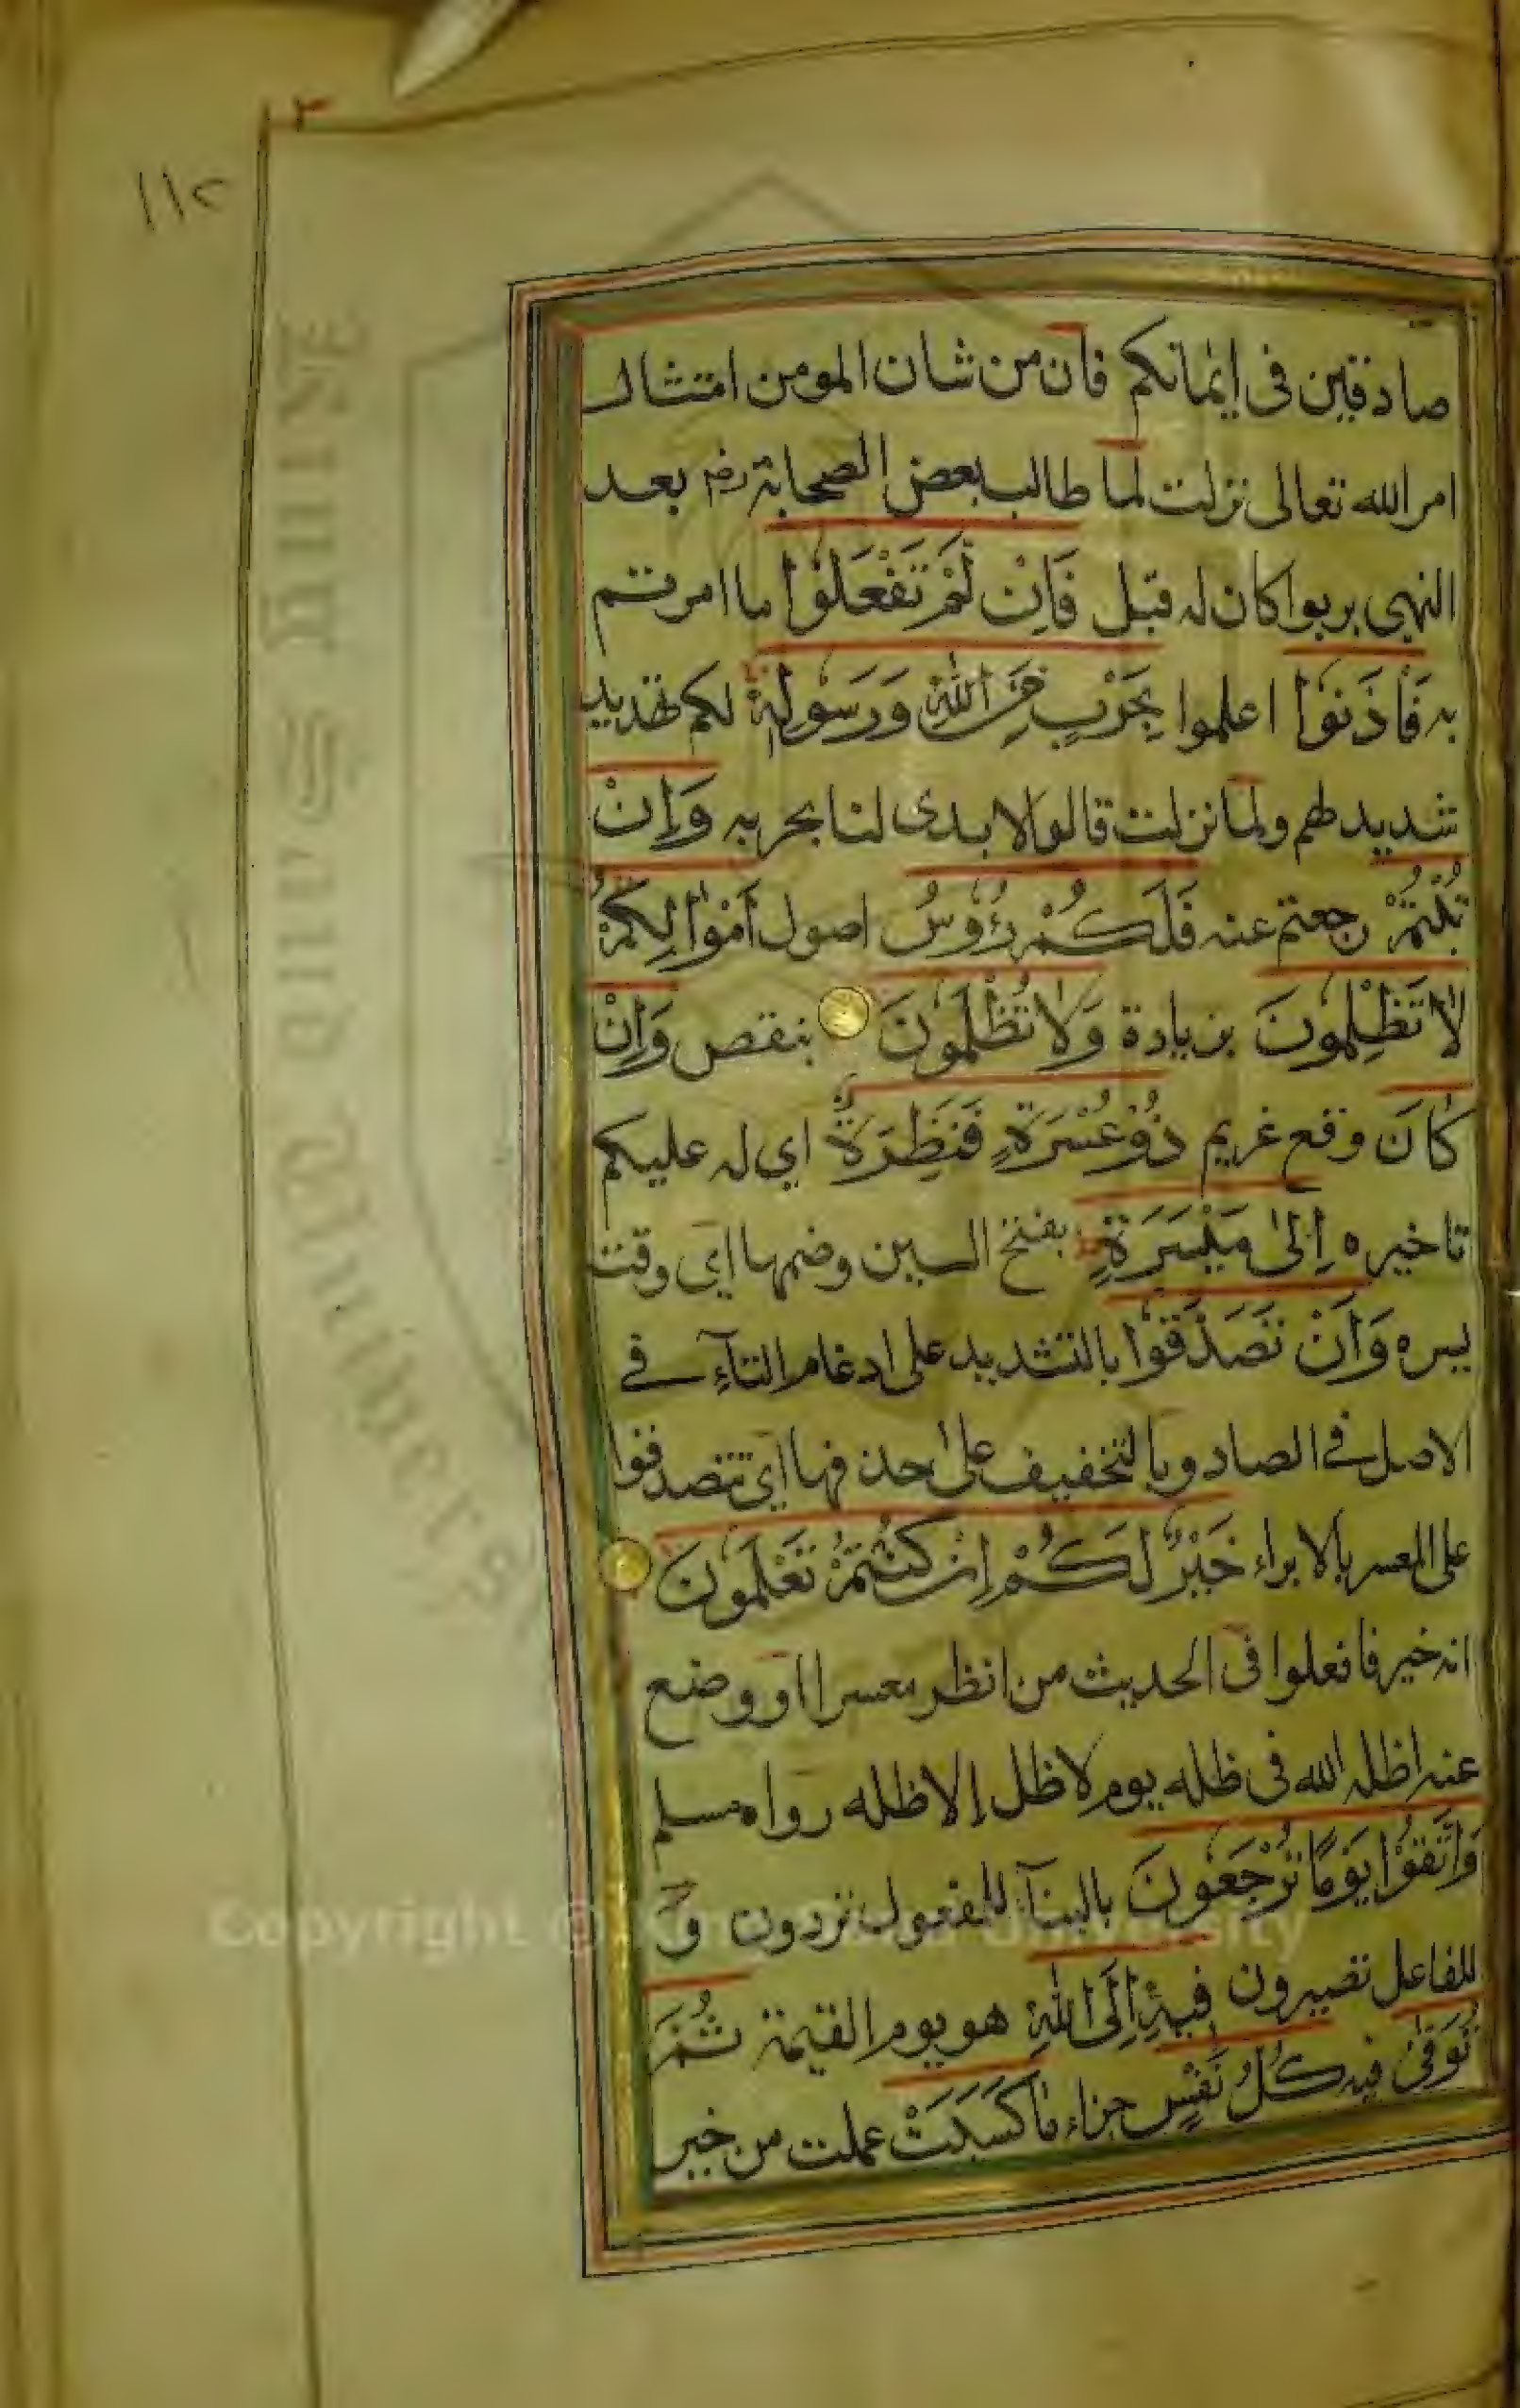 ٣
١١٢
صادقين فى ايمانكم فان من شان المومن امتثال
امر الله تعالى نزلت لما طالب بعض الصحابة رضه بعد
النهى بربوا كان له قبل فَاِنْ لَّمْ تَفْعَلُوْا ما امرتم
به فَأْذَنُوْا اعلموا بِحَرْبٍ مِّنَ اللّٰهِ وَرَسُوْلِهٖ لكم تهديد
شديد لهم ولما نزلت قالوا لا يدى لنا بحربه وَاِنْ
تُبْتُمْ رجعتم عنه فَلَكُمْ رُءُوْسُ اصول اَمْوَالِكُمْ
لَا تَظْلِمُوْنَ بزيادة وَلَا تُظْلَمُوْنَ بنقص وَاِنْ
كَانَ وقع غريم ذُوْ عُسْرَةٍ فَنَظِرَةٌ اى له عليكم
تاخيره اِلٰى مَيْسَرَةٍ بفتح السين وضمها اى وقت
يسره وَاَنْ تَصَّدَّقُوْا بالتشديد على ادغام التآء فے
الاصل فے الصاد وبالتخفيف على حذفها اى تتصدقوا
على المعسر بالابراء خَيْرٌ لَّكُمْ اِنْ كُنْتُمْ تَعْلَمُوْنَ
انه خير فافعلوا فى الحديث من انظر معسرا او وضع
عنه اظله الله فى ظله يوم لا ظل الا ظله رواه مسلم
وَاتَّقُوْا يَوْمًا تُرْجَعُوْنَ بالبنآء للمفعول تردون وَ
للفاعل تصيرون فِيْهِ اِلَى اللّٰهِ هو يوم القيمة ثُمَّ
تُوَفّٰى فيه كُلُّ نَفْسٍ جزاء مَا كَسَبَتْ عملت من خير
Copyright © University